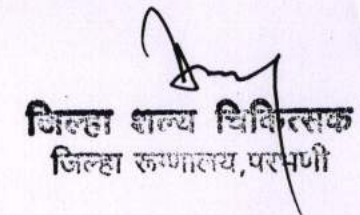 जिल्हा शल्य चिकित्सक
जिल्हा रूग्णालय,परभणी